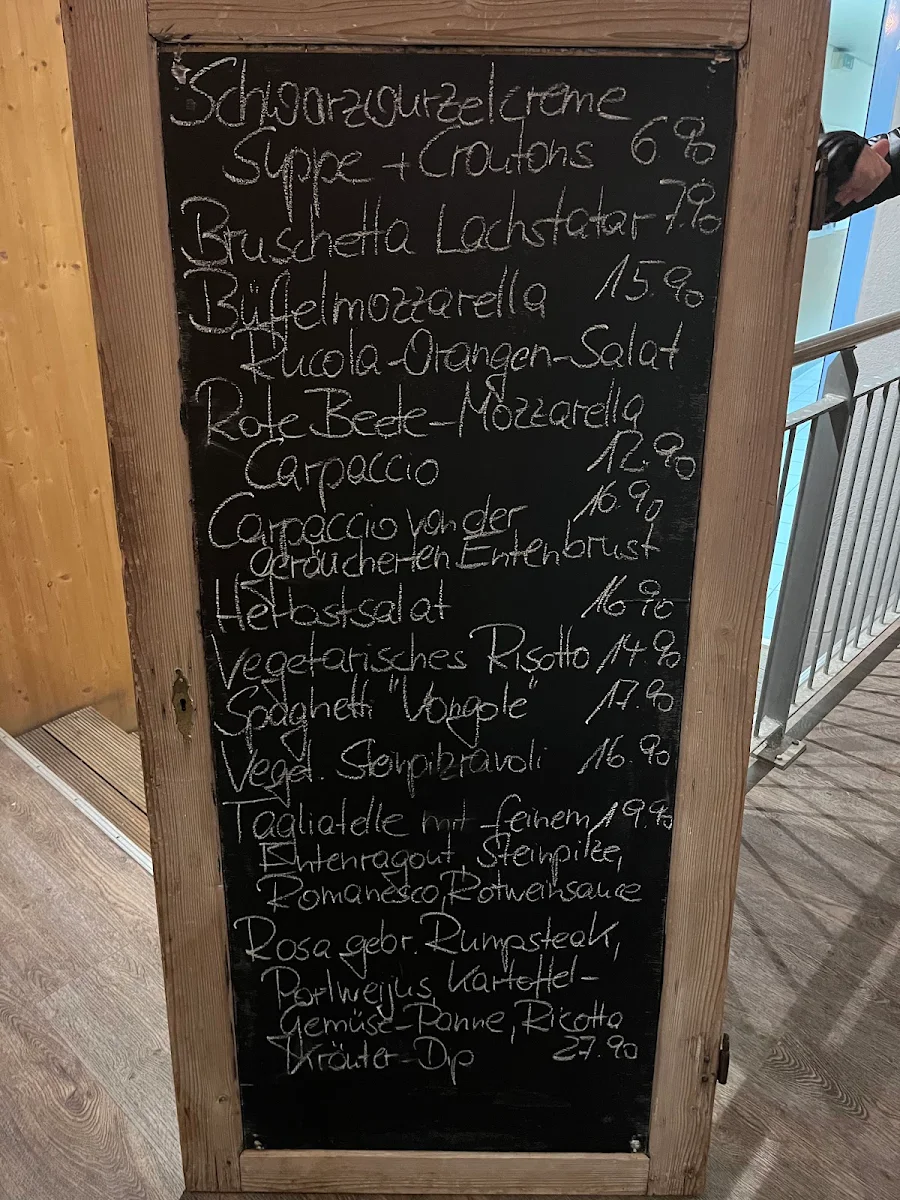 Schwarzwurzelcreme
Suppe + Croutons 6.90
Bruschetta Lachstatar 7.90
Büffelmozzarella 15.90
Rucola-Orangen-Salat
Rote Beete-Mozzarella
Carpaccio 12.90
Carpaccio von der 16.90
geräucherten Entenbrust
Herbstsalat 16.90
Vegetarisches Risotto 14.90
Spaghetti "Vongole" 17.90
Veget. Steinpilzravoli 16.90
Tagliatelle mit feinem 19.90
Entenragout, Steinpilze,
Romanesco, Rotweinsauce
Rosa gebr. Rumpsteak,
Portweijus, Kartoffel-
Gemüse-Panne, Ricotta
Kräuter-Dip 27.90